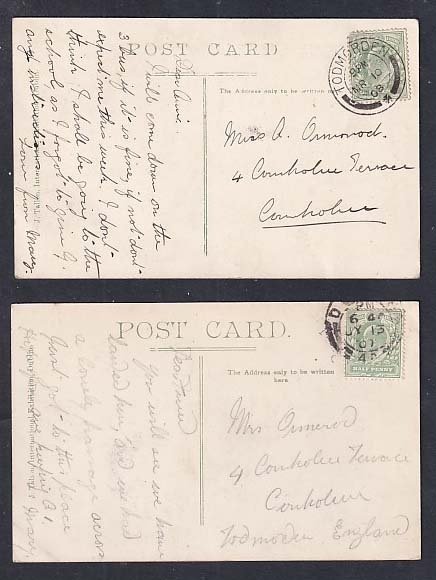 POST CARD
The Address only to be written
TODMORDEN
10
08
Miss A. Ormerod.
4 Cornholme Terrace
Cornholme
Dear Annie.
I will come down on the
3 bus, if it is fine, if not don't
this week. I don't
think I shall be going to the
school as I forgot to give A.
any
Love from Mary.
POST CARD.
The Address only to be written
here
JY 3
07
HALF PENNY
Mrs Ormerod
4 Cornholme Terrace
Cornholme
Todmorden England
You will see we have
landed here, and we had
a lovely passage across
Just got to this place
Mary